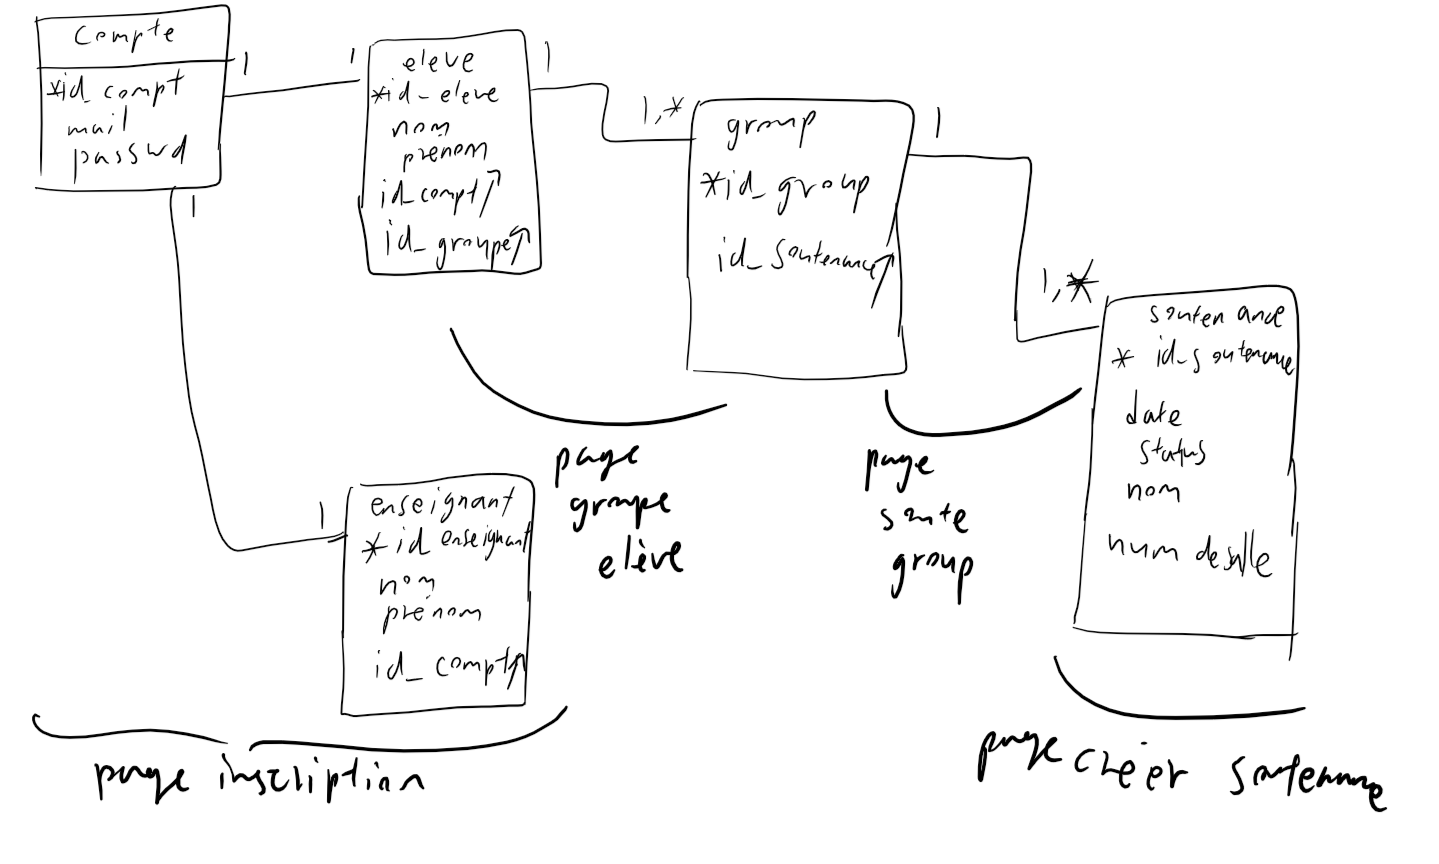 Compte
*id_compt
mail
passwd
1
1
1
eleve
*id_eleve
nom
prenom
id_compt↑
id_groupe↑
1
1,*
group
*id_group
id_soutenance↑
1
1,*
soutenance
* id_soutenance
date
status
nom
num de salle
1
enseignant
*id enseignant
nom
prenom
id_compt↑
page
groupe
elève
page
soute
group
page inscription
page créer soutenance